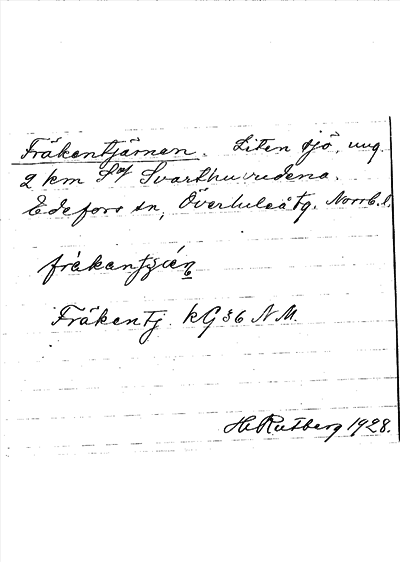 Fräkentjärnen. Liten sjö, ung.
2 km S of Svarthuvudena.
Edefors sn, Överluleå tg. Norrb. l.
fräkentjärn
Fräkentj. KG 36 N M.
H. Rutberg 1928.